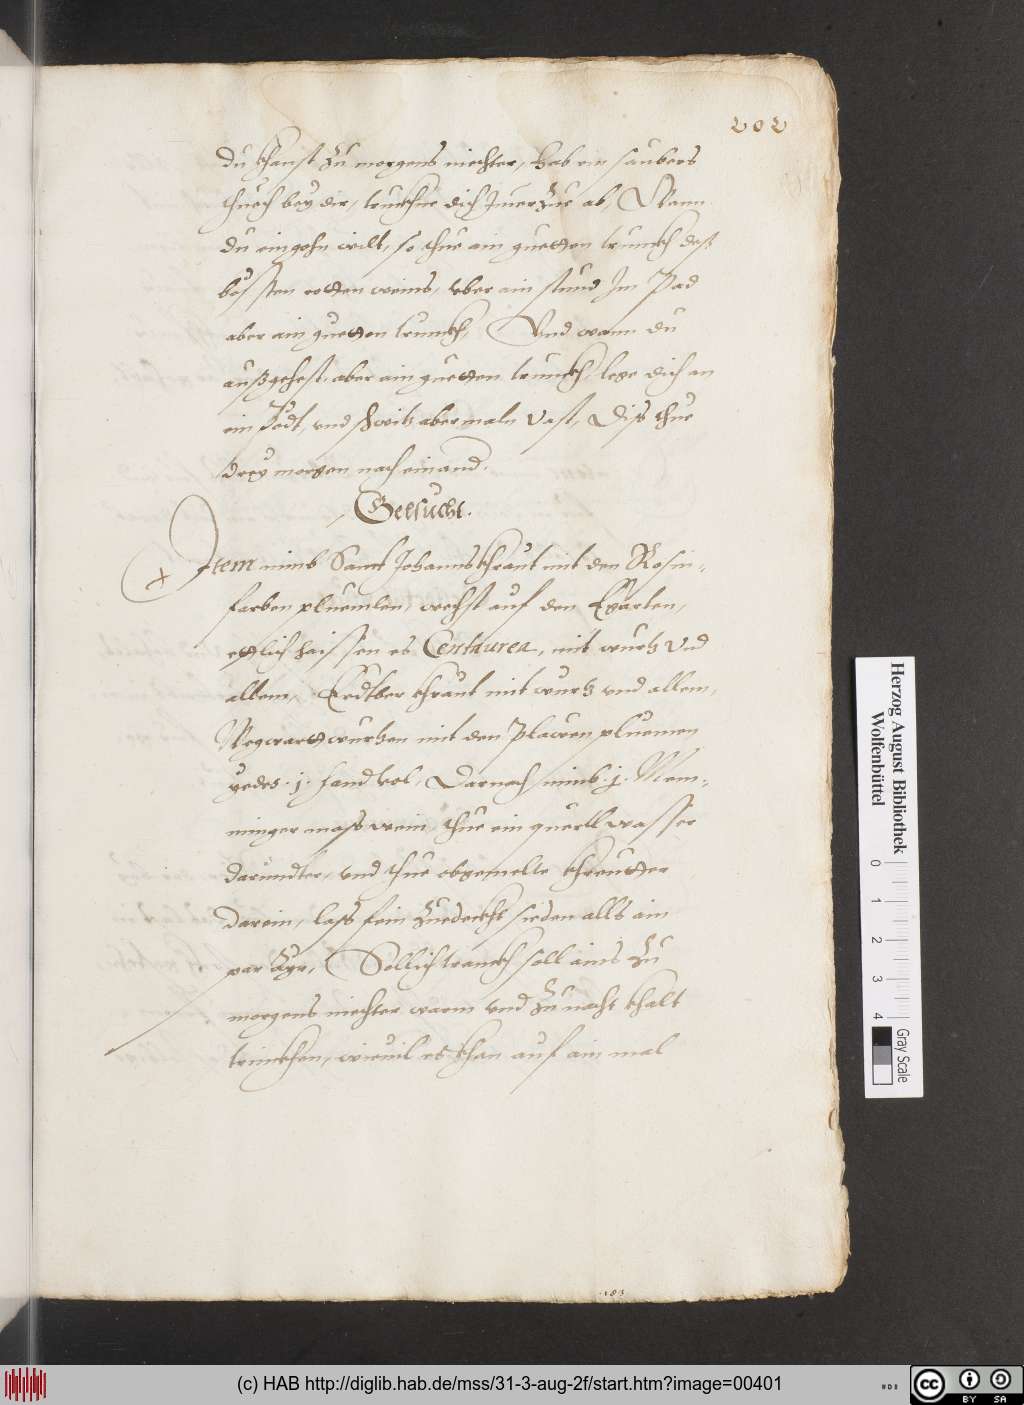 202
du khanst zu morgens niechter, hab ein saubers
thuech bey dir, truckhne dich Imerzue ab, Wann
du eingehn wilt, so thue ain guetten trunckh deß
bessten rotten weins, vber ain stund Im Pad
aber ain guetten trunckh, Vnd wann du
außgehest, aber ain guetten trunckh, lege dich an
ein Pedt, vnd schwitz abermaln vast, Diss thue
drey morgen nach einand.
Gelsucht.
Item nimb Sanct Johannskhraut mit den Rosin-
farben pluemlen, wechst auf den Egarten,
ettlich haissen es Centaurea, mit wurtz vnd
allem, Erdtber khraut mit wurtz vnd allem,
Wegwartt wurtzen mit den Plawen pluemen
yedes .j. handtvol, Darnach nimb .j. Mem-
minger mass wein, thue ein quell wasser
darundter, vnd thue obgemelte khreutter
darein, lass fein zuedeckht sieden alls ain
par Ayr, Sollich tranckh soll ains zu
morgens niechter warm vnd zu nacht khalt
trinckhen, wieuil es khan auf ain mal
183
Herzog August Bibliothek
Wolfenbüttel
0 1 2 3 4
Gray Scale
(c) HAB http://diglib.hab.de/mss/31-3-aug-2f/start.htm?image=00401
cc BY SA